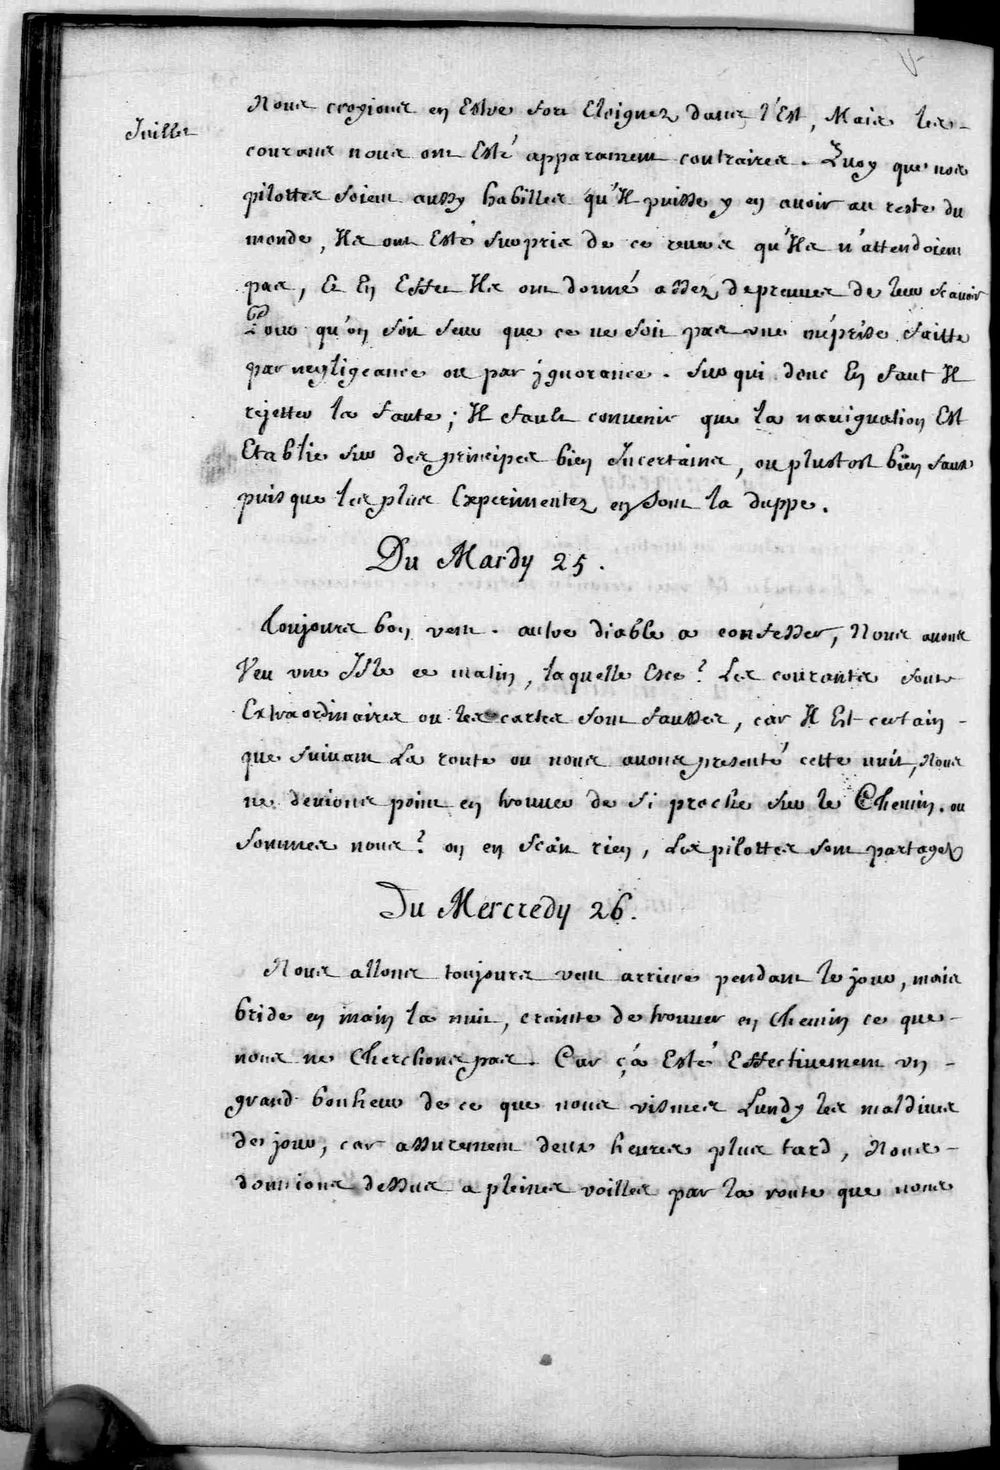 Juillet
Nous croyions en Estre fort Eloignez dans l'Est, Mais les
courans nous ont Esté apparament contraires. Quoy que nos
pilottes soient aussy habilles qu'Il puisse y en avoir au reste du
monde, Ils ont Esté surpris de ce revers qu'Ils n'attendoient
pas, Et En Effet Ils ont donné assez de preuves de leur scavoir
Pour qu'on soit seur que ce ne soit pas une méprise faitte
par negligeance ou par jgnorance. sur qui donc En faut Il
rejetter la faute; Il fault convenir que la naviguation Est
Etablie sur des principes bien Incertains, ou plustost bien faux
puis que les plus Experimentez en sont la duppe.
Du Mardy 25.
Toujours bon vent. autre diable a confesser, Nous avons
Veu une Isle ce matin, laquelle Esce? Les courants sont
Extraordinaires ou les cartes sont fausses, car Il Est certain
que suivant La route ou nous avons presenté cette nuit, Nous
ne devions point en trouver de si proche sur le Chemin. ou
sommes nous? on en scait rien, Les pilottes sont partagez
Du Mercredy 26.
Nous allons toujours vent arriere pendant le jour, mais
bride en main la nuit, crainte de trouver en Chemin ce que
nous ne Cherchons pas. Car ç'a Esté Effectivement un
grand bonheur de ce que nous vismes Lundy les maldives
de jour, car assurement deux heures plus tard, Nous
donnions dessus a pleines voilles par la route que nous